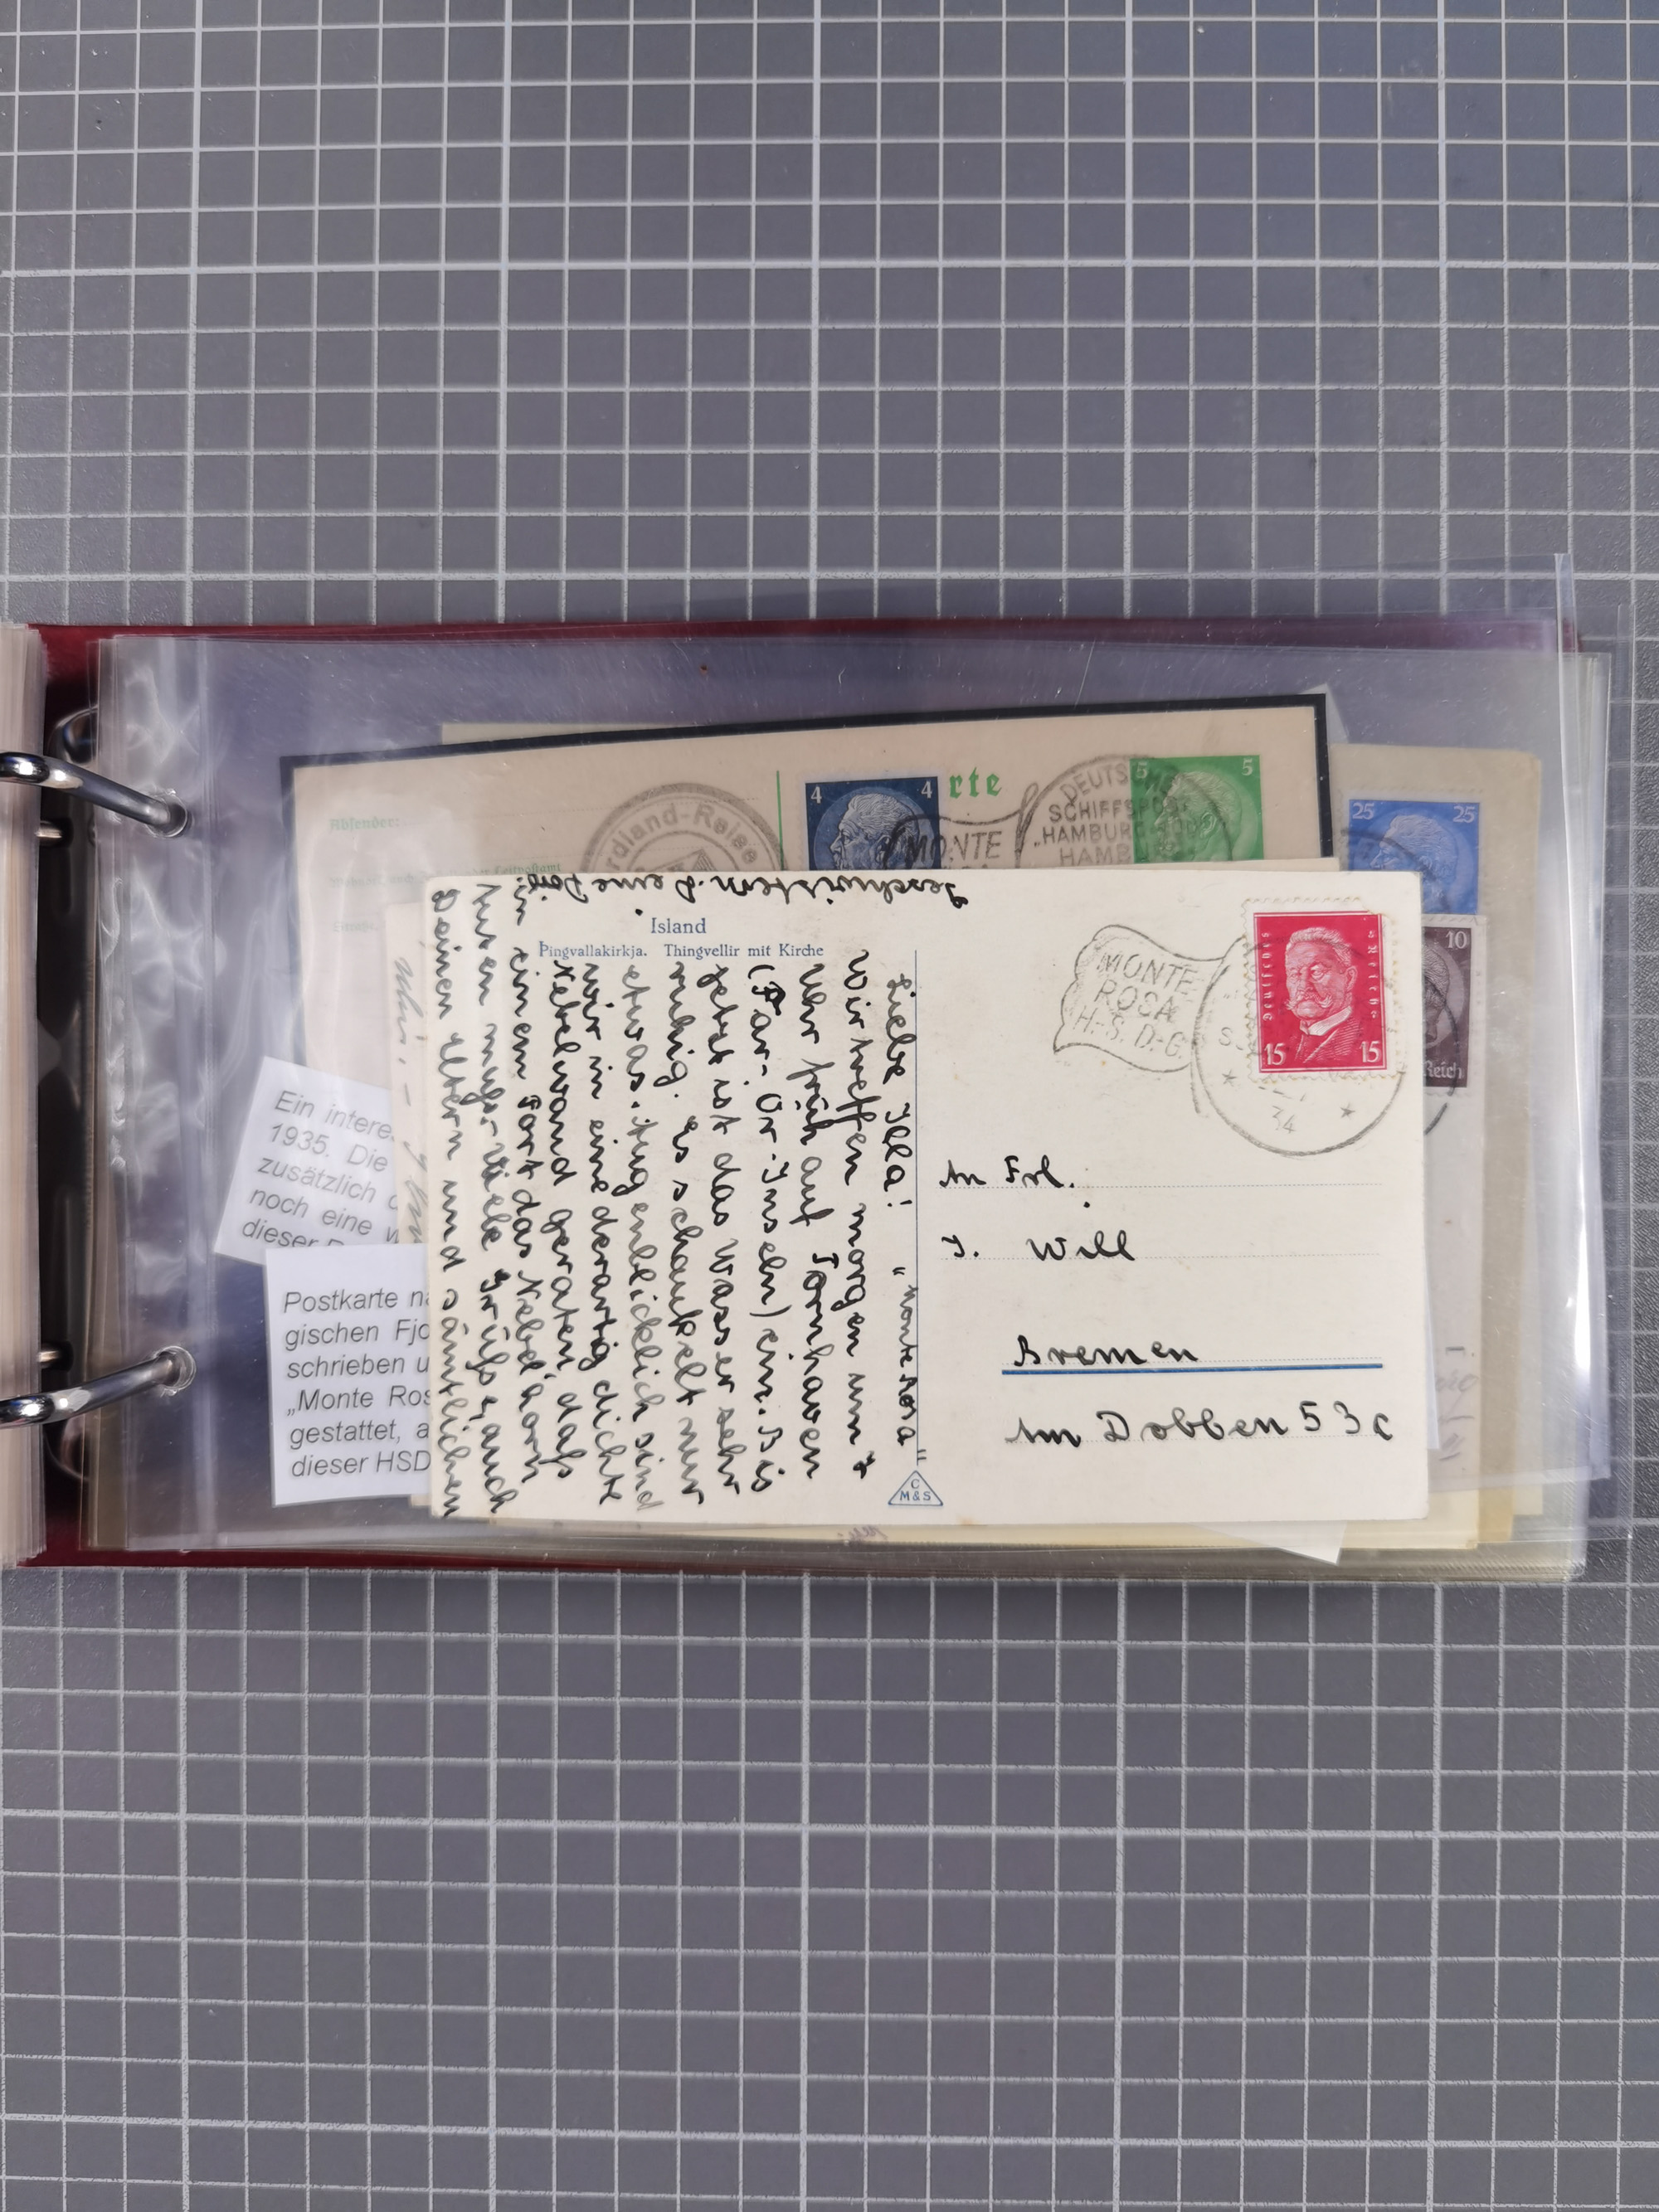 Island
Þingvallakirkja. Thingvellir mit Kirche
"Monte Rosa"
Liebe Illa!
Wir treffen morgen um 7
Uhr früh auf Tornhaven
(Far-Ör-Inseln) ein. Bis
jetzt ist das Wasser sehr
ruhig. Es schaukelt nur
etwas. Augenblicklich sind
wir in eine derartig dichte
Nebelwand geraten, daß
in einem Fort das Nebelhorn
tuten muß. Viele Grüße, auch
Deinen Eltern und sämtlichen
Geschwistern. Deine
C
M&S
MONTE
ROSA
H.-S. D.-G.
34
Deutsches Reich
15 15
An Frl.
I. Will
Bremen
Am Dobben 53c
Absender:
rdland-Reise
4 4
rte
MONTE
DEUTSCHE
SCHIFFSPOST
„HAMBURG-SÜD
HAMB
5 5
25 25
10
Reich
Ein intere
1935. Die
zusätzlich
noch eine w
dieser
Postkarte na
gischen Fjo
schrieben u
„Monte Ros
gestattet, a
dieser HSD